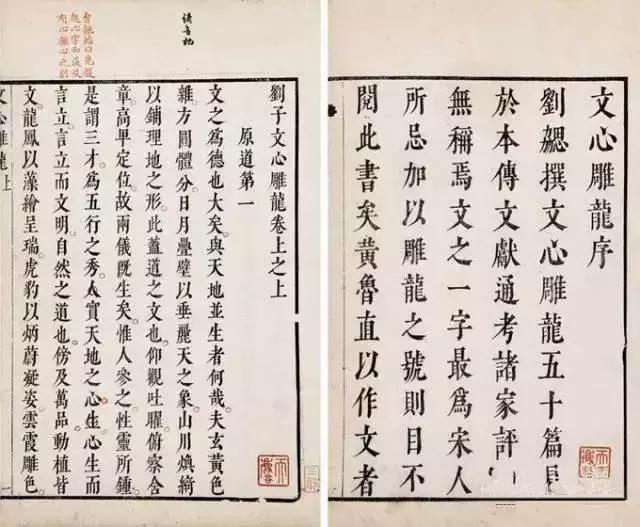 文心雕龍序
劉勰撰文心雕龍五十篇
於本傳文獻通考諸家評
無稱焉文之一字最爲宋人
所忌加以雕龍之號則目不
閱此書矣黃魯直以作文者
曹能始曰先提
心字而後及
有心無心之別
劉子文心雕龍卷上之上
原道第一
文之爲德也大矣與天地並生者何哉夫玄黃色
雜方圓體分日月疊璧以垂麗天之象山川煥綺
以鋪理地之形此蓋道之文也仰觀吐曜俯察含
章高卑定位故兩儀既生矣惟人參之性靈所鍾
是謂三才爲五行之秀人實天地之心生心生而
言立言立而文明自然之道也傍及萬品動植皆
文龍鳳以藻繪呈瑞虎豹以炳蔚凝姿雲霞雕色
文心雕龍上